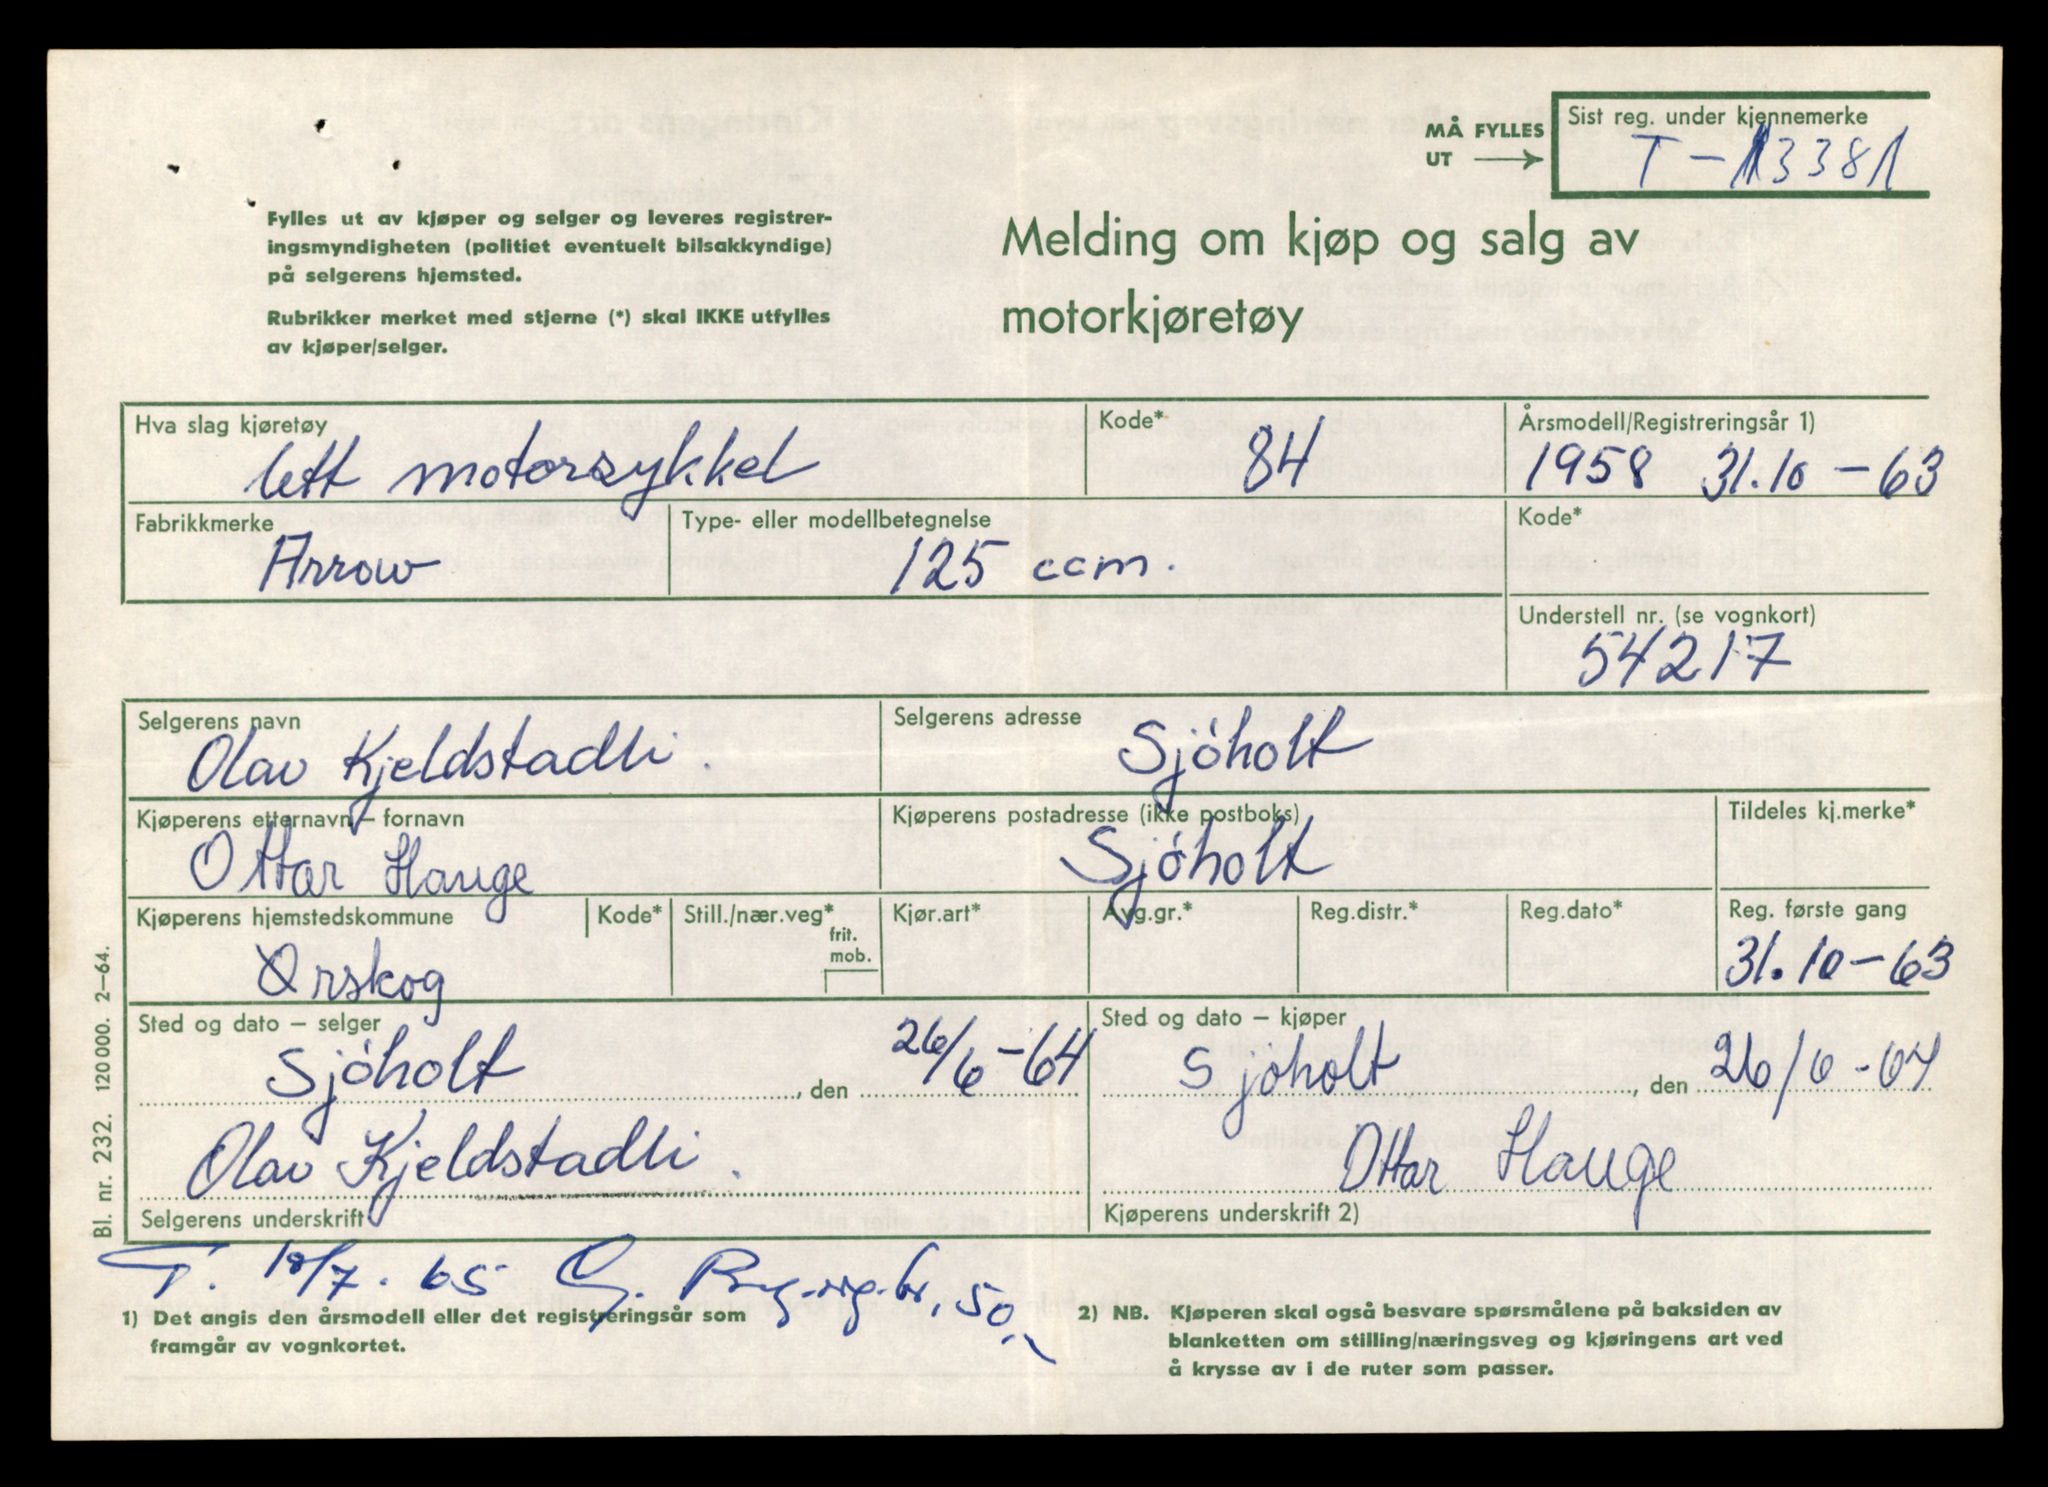 MÅ FYLLES UT →
Sist reg. under kjennemerke
T-13381
Fylles ut av kjøper og selger og leveres registrer-
ingsmyndigheten (politiet eventuelt bilsakkyndige)
på selgerens hjemsted.
Rubrikker merket med stjerne (*) skal IKKE utfylles
av kjøper/selger.
Melding om kjøp og salg av
motorkjøretøy
Hva slag kjøretøy
lett motorsykkel
Kode*
84
Årsmodell/Registreringsår 1)
1958 31.10-63
Fabrikkmerke
Arrow
Type- eller modellbetegnelse
125 ccm.
Kode*
Understell nr. (se vognkort)
54217
Selgerens navn
Olav Kjeldstadli.
Selgerens adresse
Sjóholt
Kjøperens etternavn - fornavn
Ottar Hauge
Kjøperens postadresse (ikke postboks)
Sjóholt
Tildeles kj.merke*
Kjøperens hjemstedskommune
Ørskog
Kode*
Still./nær.veg*
frit.
mob.
Kjør.art*
Avg.gr.*
Reg.distr.*
Reg.dato*
Reg. første gang
31.10-63
Sted og dato - selger
Sjóholt, den 26/6-64
Sted og dato - kjøper
Sjóholt, den 26/6-64
Olav Kjeldstadli.
Selgerens underskrift
Ottar Hauge
Kjøperens underskrift 2)
Bl. nr. 232. 120 000. 2-64.
T. 10/7. 65 50,-
1) Det angis den årsmodell eller det registreringsår som
framgår av vognkortet.
2) NB. Kjøperen skal også besvare spørsmålene på baksiden av
blanketten om stilling/næringsveg og kjøringens art ved
å krysse av i de ruter som passer.